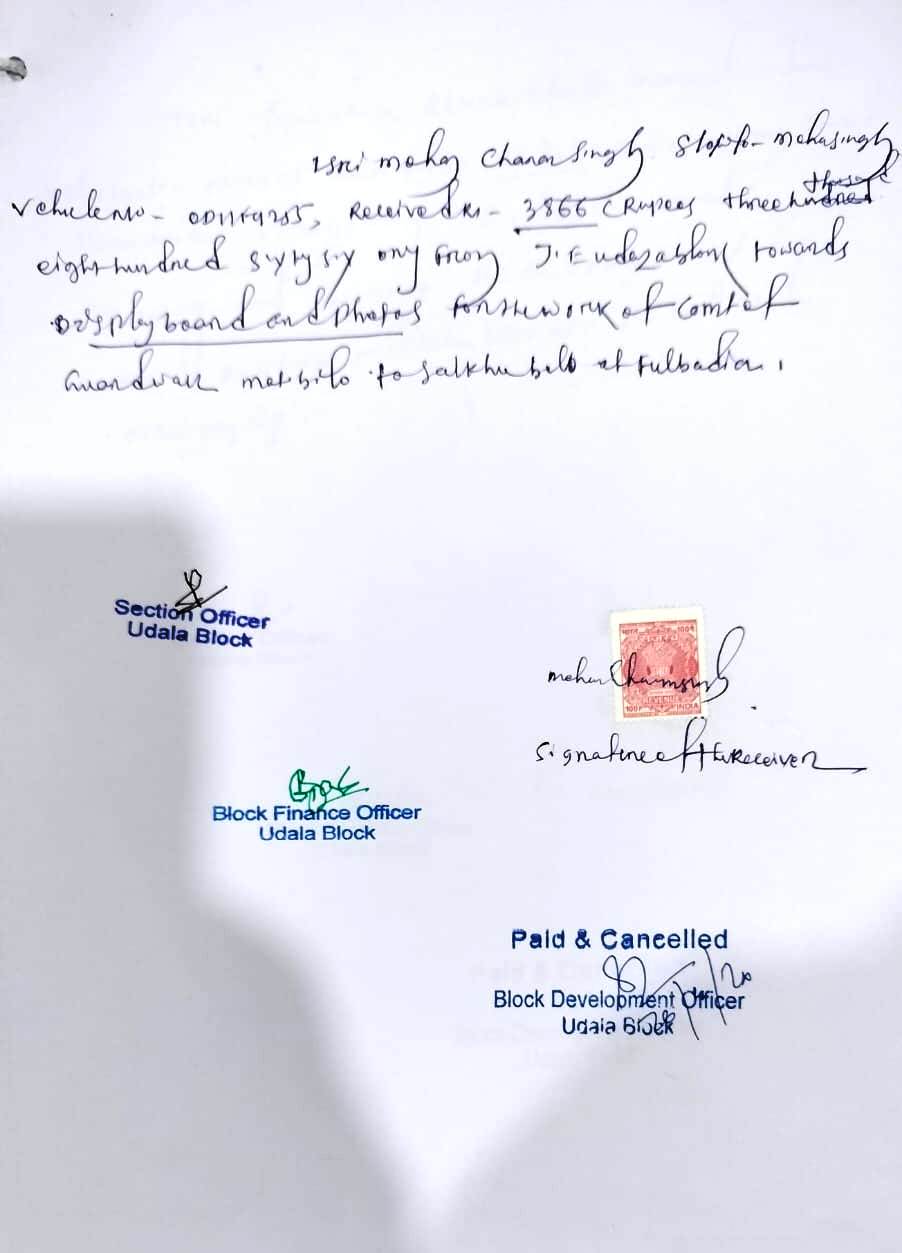 I Sri Mohan Charan Singh S/o- Mohasingh
Vehicle No - OD11F9255, Received Rs - 3866 (Rupees three hundred thousand
eight hundred sixty six only from J.E Udala block towards
Display board and Photos for the work of Const of
Guardwall to Salkhu at Fulbadia.
Section Officer
Udala Block
100P 100P
REVENUE
100P INDIA
Mohan Charan Singh
Signature of the Receiver
Block Finance Officer
Udala Block
Paid & Cancelled
Block Development Officer
Udala Block